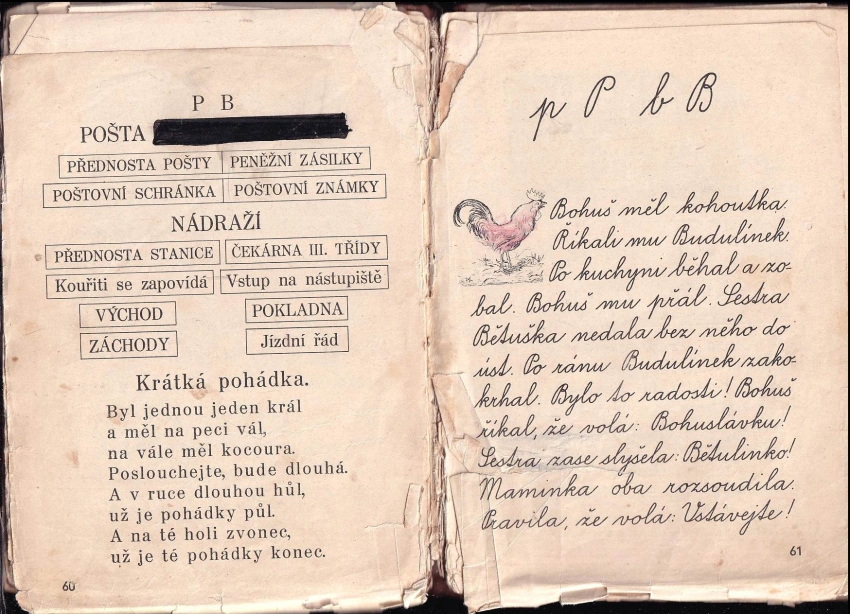 P B
POŠTA
PŘEDNOSTA POŠTY PENĚŽNÍ ZÁSILKY
POŠTOVNÍ SCHRÁNKA POŠTOVNÍ ZNÁMKY
NÁDRAŽÍ
PŘEDNOSTA STANICE ČEKÁRNA III. TŘÍDY
Kouřiti se zapovídá Vstup na nástupiště
VÝCHOD POKLADNA
ZÁCHODY Jízdní řád
Krátká pohádka.
Byl jednou jeden král
a měl na peci vál,
na vále měl kocoura.
Poslouchejte, bude dlouhá.
A v ruce dlouhou hůl,
už je pohádky půl.
A na té holi zvonec,
už je té pohádky konec.
60
p P b B
Bohuš měl kohoutka.
Říkali mu Budulínek.
Po kuchyni běhal a zo-
bal. Bohuš mu přál. Sestra
Bětuška nedala bez něho do
úst. Po ránu Budulínek zako-
krhal. Bylo to radosti! Bohuš
říkal, že volá: Bohuslávku!
Sestra zase slyšela: Bětulinko!
Maminka oba rozsoudila.
Pravila, že volá: Vstávejte!
61